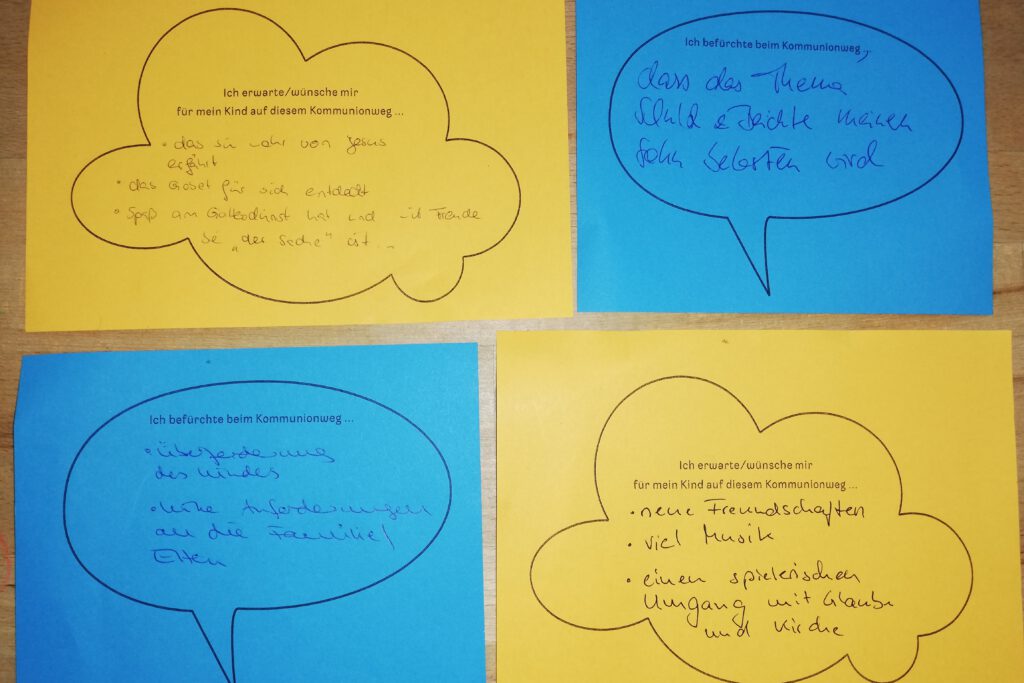 Ich erwarte/wünsche mir
für mein Kind auf diesem Kommunionweg ...
• das sie mehr von Jesus
erfährt
• das Gebet für sich entdeckt
• Spaß am Gottesdienst hat und mit Freude
bei „der Sache" ist ...
Ich befürchte beim Kommunionweg,
dass das Thema
Schuld & Beichte meinen
Sohn belasten wird
Ich befürchte beim Kommunionweg ...
• Überforderung
des Kindes
• hohe Anforderungen
an die Familie/
Eltern
Ich erwarte/wünsche mir
für mein Kind auf diesem Kommunionweg ...
• neue Freundschaften
• viel Musik
• einen spielerischen
Umgang mit Glaube
und Kirche